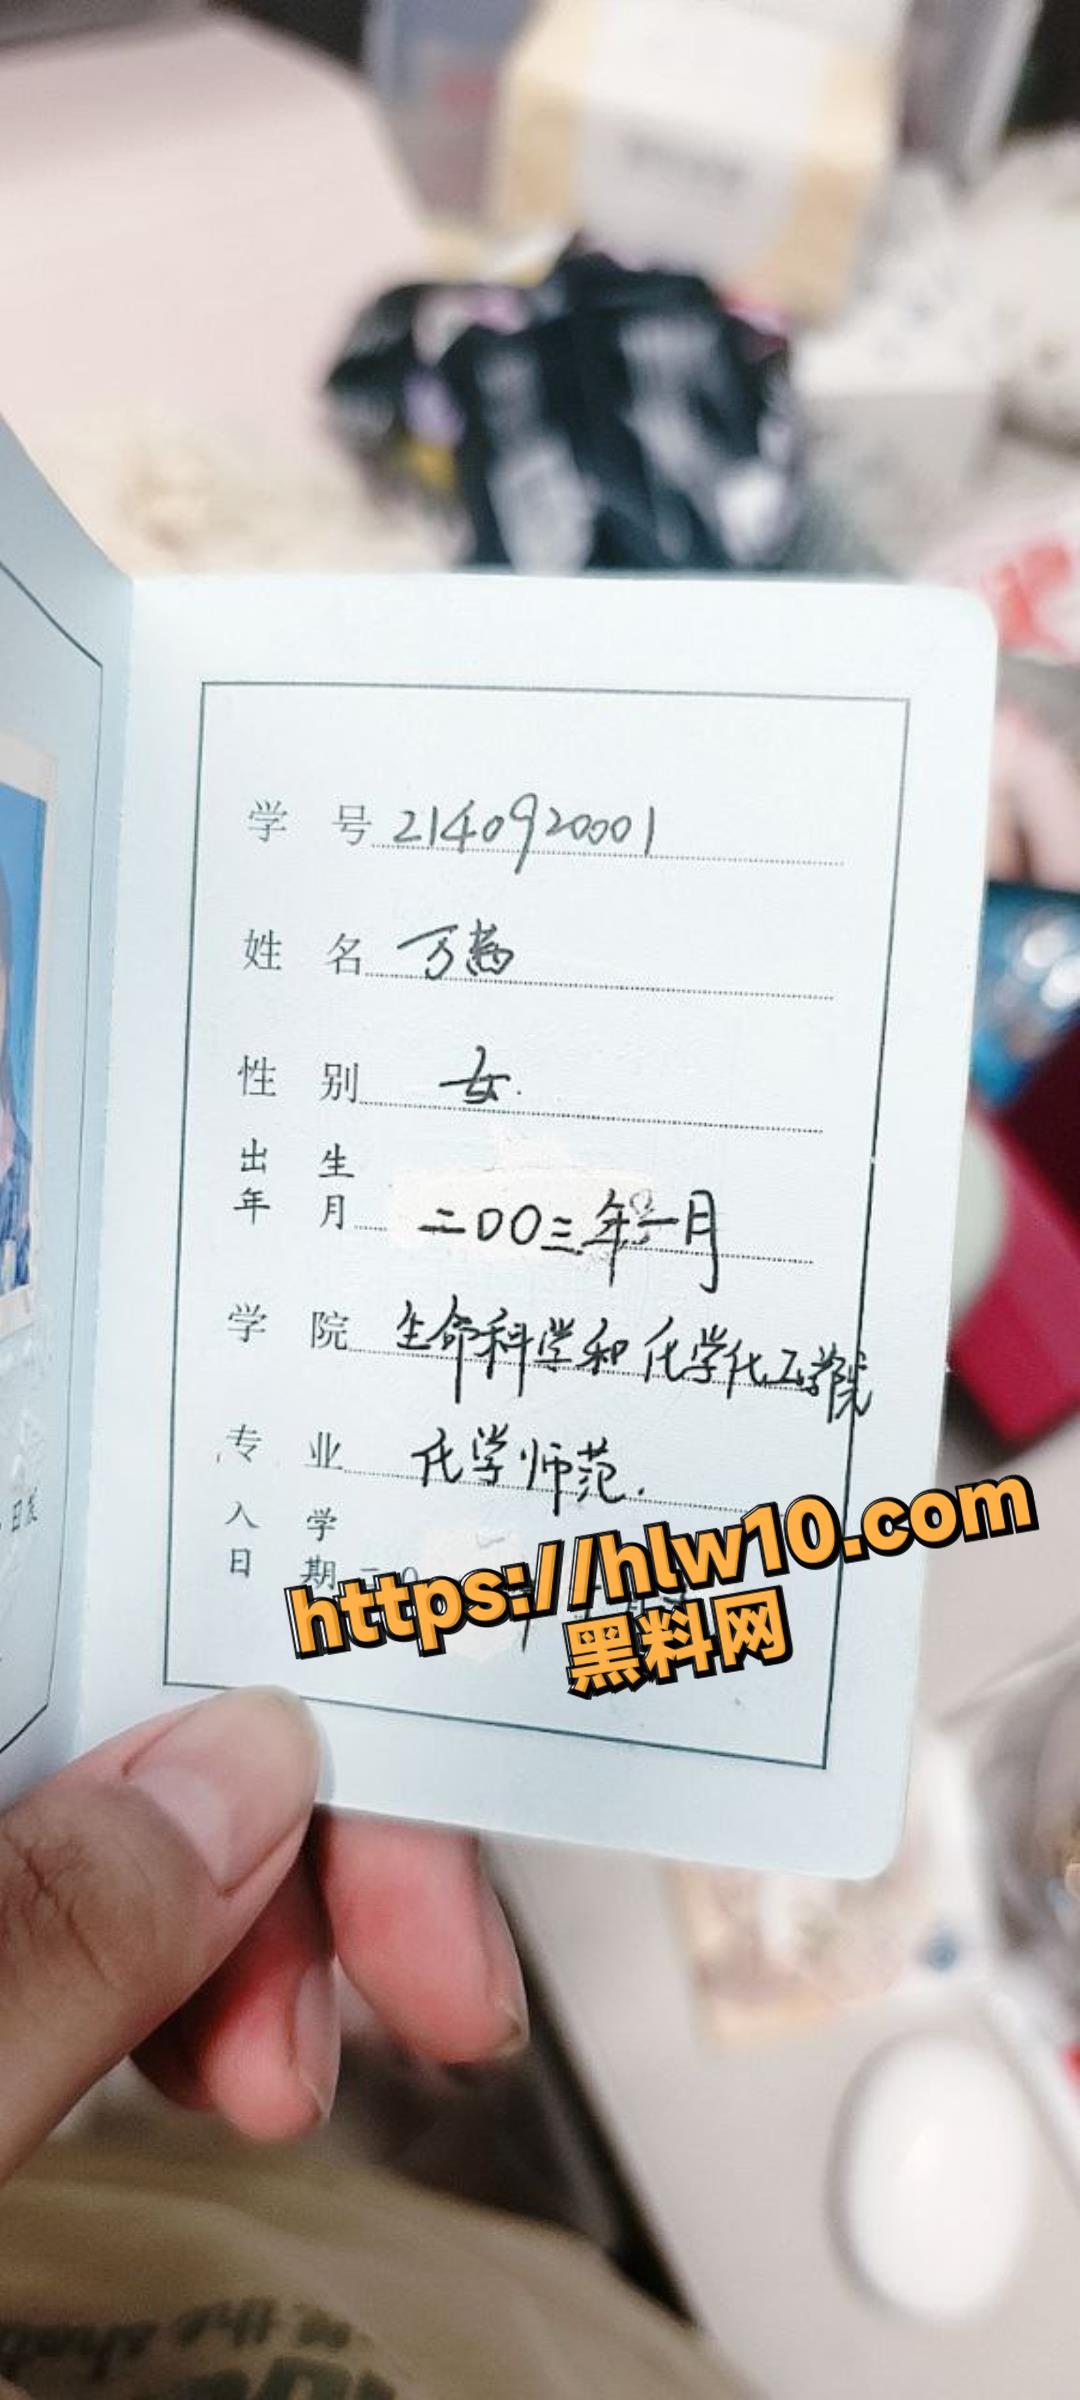 学 号 2140920001
姓 名 万
性 别 女.
出 生
年 月 二00三年一月
学 院 生命科学和化学化工学院
专 业 化学师范.
入 学
日 期 二0
https://hlw10.com
黑料网